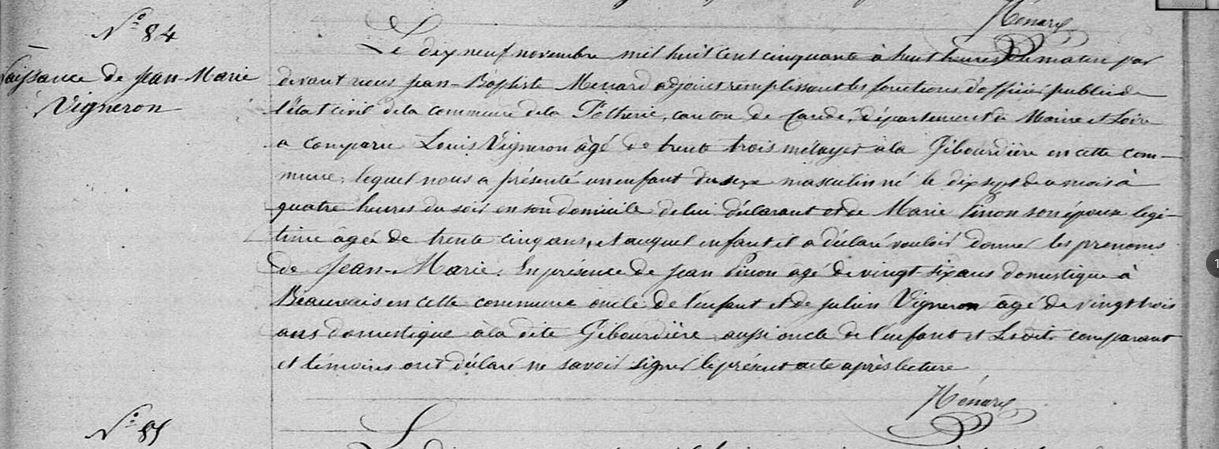 N° 84
Naissance de Jean-Marie
Vigneron
Hénard
Le dix neuf novembre mil huit cent cinquante à huit heures du matin par
devant nous Jean-Baptiste Menard adjoint remplissant les fonctions d'officier public de
l'état civil de la commune de la Potherie, canton de Candé, département de Maine et Loire
a comparu Louis Vigneron âgé de trente trois métayer à la Gibourdière en cette com-
mune, lequel nous a présenté un enfant du sexe masculin né le dix sept de ce mois à
quatre heures du soir en son domicile de lui déclarant et de Marie Pinon son épouse légi-
time âgée de trente cinq ans, et auquel enfant il a déclaré vouloir donner les prenoms
de Jean-Marie. En présence de Jean Pinon âgé de vingt six ans domestique à
Beauvais en cette commune oncle de l'enfant et de Julien Vigneron âgé de vingt trois
ans domestique à la dite Gibourdière aussi oncle de l'enfant et Lesdits comparant
et témoins ont déclaré ne savoir signer le présent acte après lecture
Hénard
N° 85